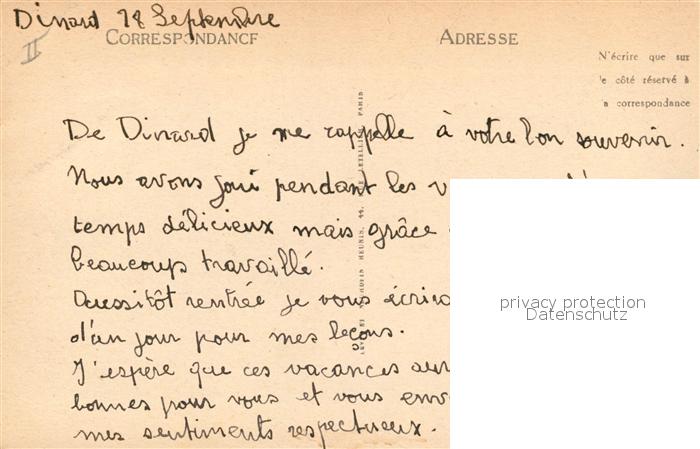 Dinard 18 Septembre
II
CORRESPONDANCE
ADRESSE
N'écrire que sur
le côté réservé à
la correspondance
De Dinard je me rappelle à votre bon souvenir.
Nous avons joui pendant les v
temps délicieux mais grâce
beaucoup travaillé.
Aussitôt rentrée je vous écrira
d'un jour pour mes leçons.
J'espère que ces vacances
bonnes pour vous et vous env
mes sentiments respectueux.
RUE LETELLIER, PARIS
privacy protection
Datenschutz